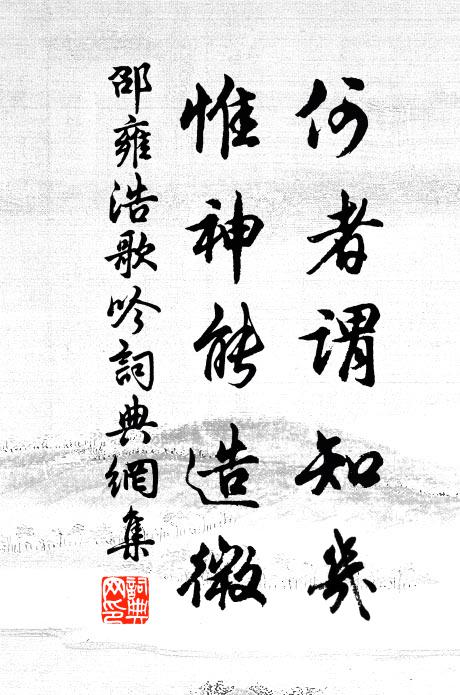 何者謂知幾
惟神能造微
邵雍浩歌吟詞典網集
詞典網印